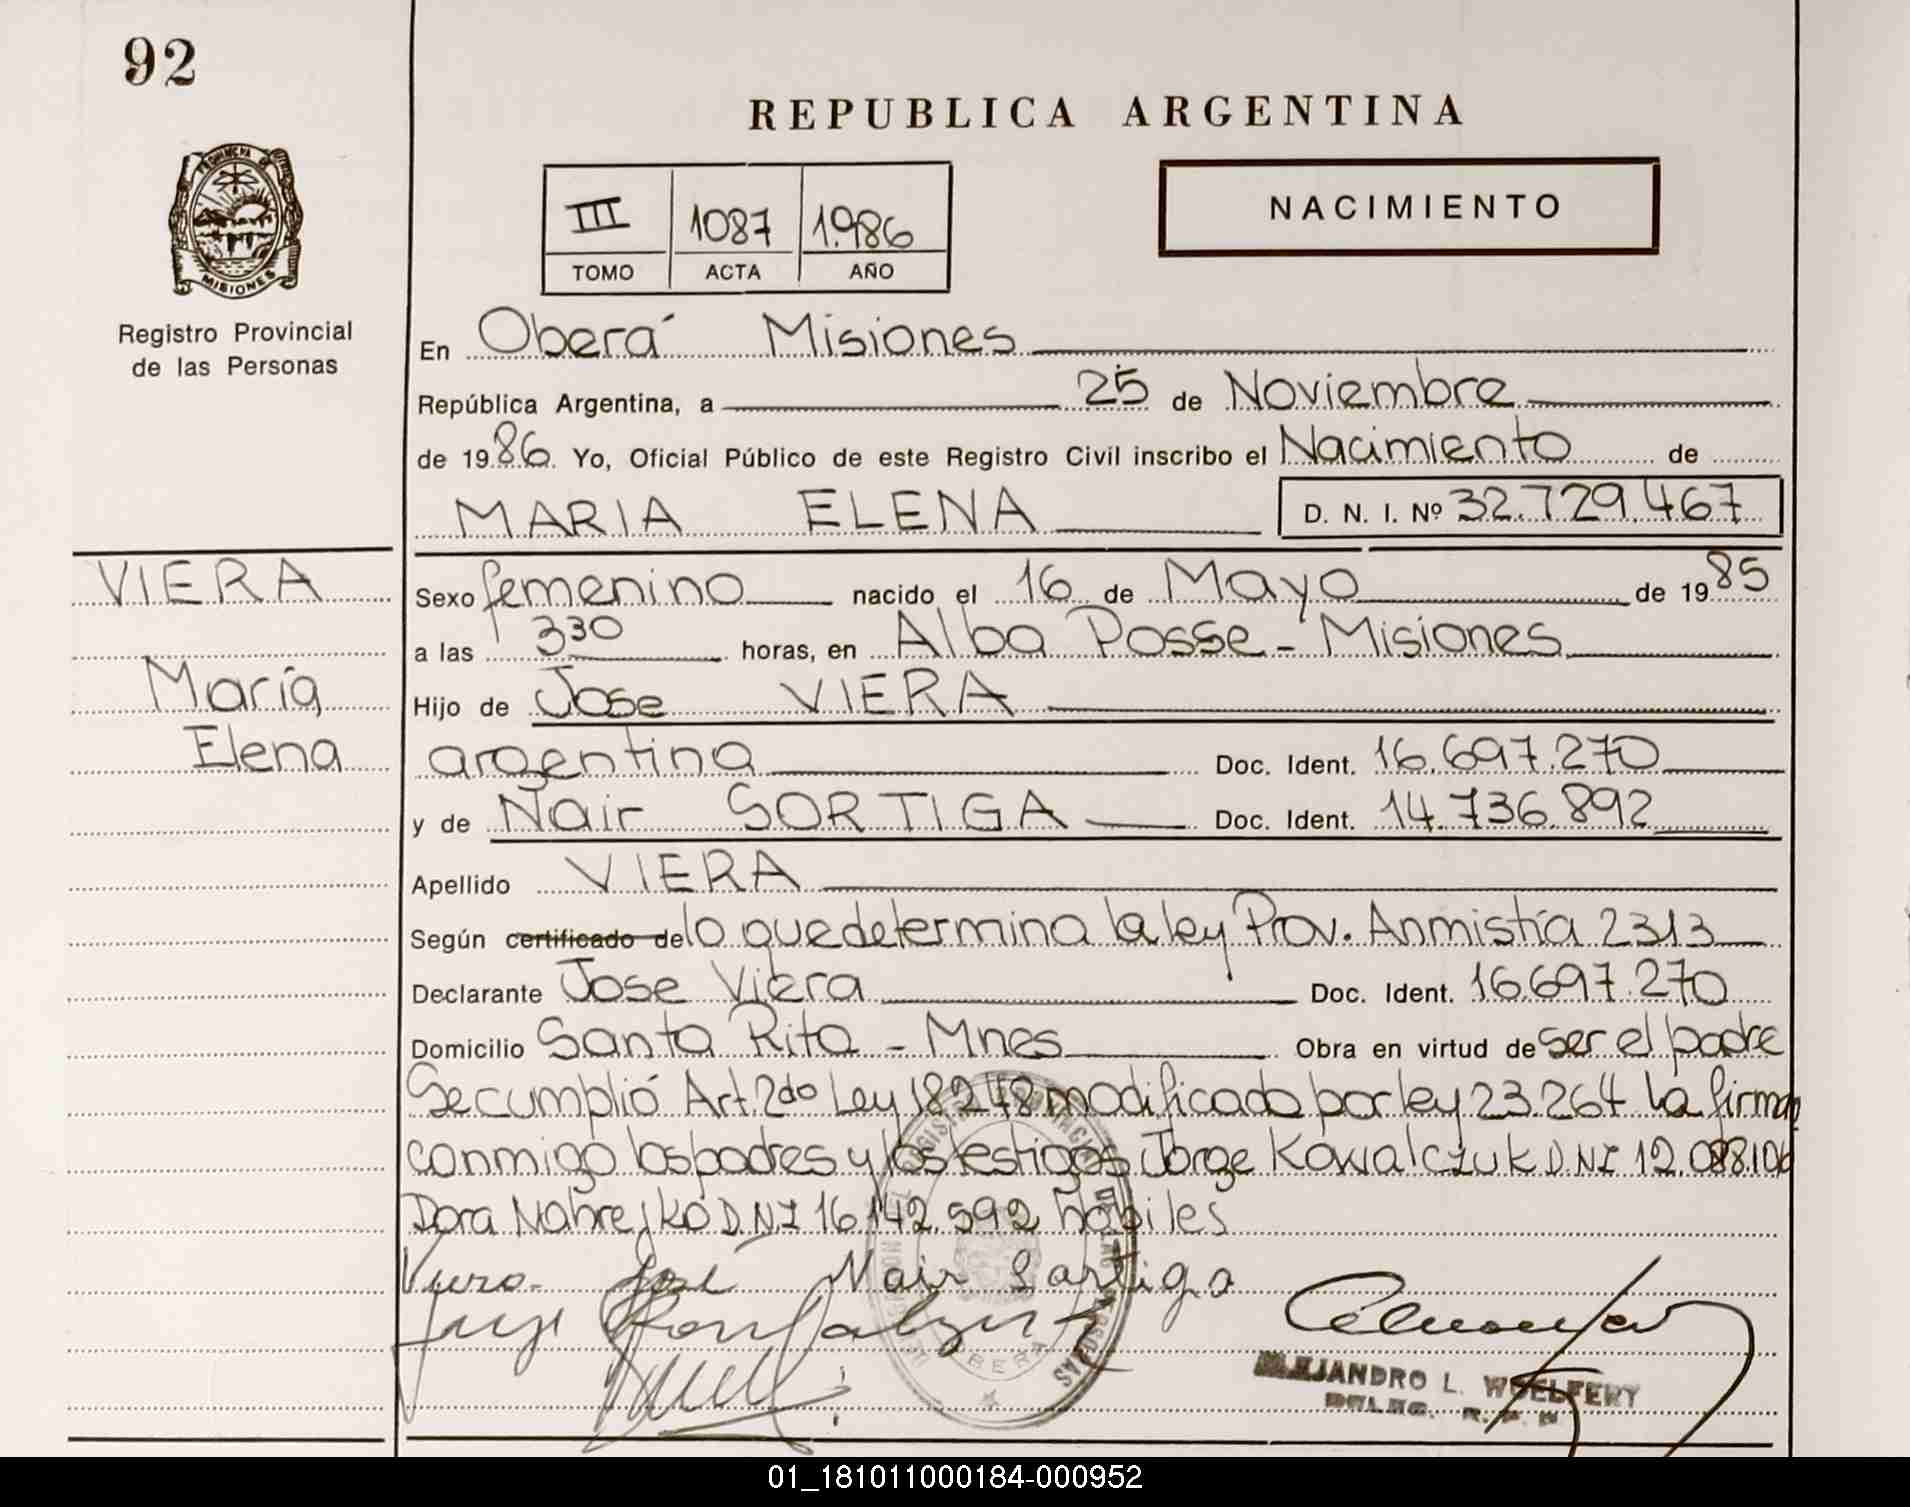 92
REPUBLICA ARGENTINA
PROVINCIA DE
MISIONES
Registro Provincial
de las Personas
III 1087 1.986
TOMO ACTA AÑO
NACIMIENTO
En Oberá Misiones
República Argentina, a 25 de Noviembre
de 1986. Yo, Oficial Público de este Registro Civil inscribo el Nacimiento de
MARIA ELENA D. N. I. Nº 32.729.467
VIERA
María
Elena
Sexo femenino nacido el 16 de Mayo de 1985
a las 330 horas, en Alba Posse - Misiones
Hijo de Jose VIERA
argentina Doc. Ident. 16.697.270
y de Nair SORTIGA Doc. Ident. 14.736.892
Apellido VIERA
Según certificado de lo que determina la ley Prov. Anmistía 2313
Declarante Jose Viera Doc. Ident. 16.697.270
Domicilio Santa Rita - Mnes Obra en virtud de ser el padre
Se cumplió Art. 2do Ley 18248 modificado por ley 23.264 la firman
conmigo los padres y los testigos Jorge Kowalczuk DNI 12.088.106
Dora Nahrejko DNI 16.142.592 hábiles
Viera José Nair Sartiga
OBERA
ALEJANDRO L. WOELFERY
DELEG. R. P. P.
01_181011000184-000952